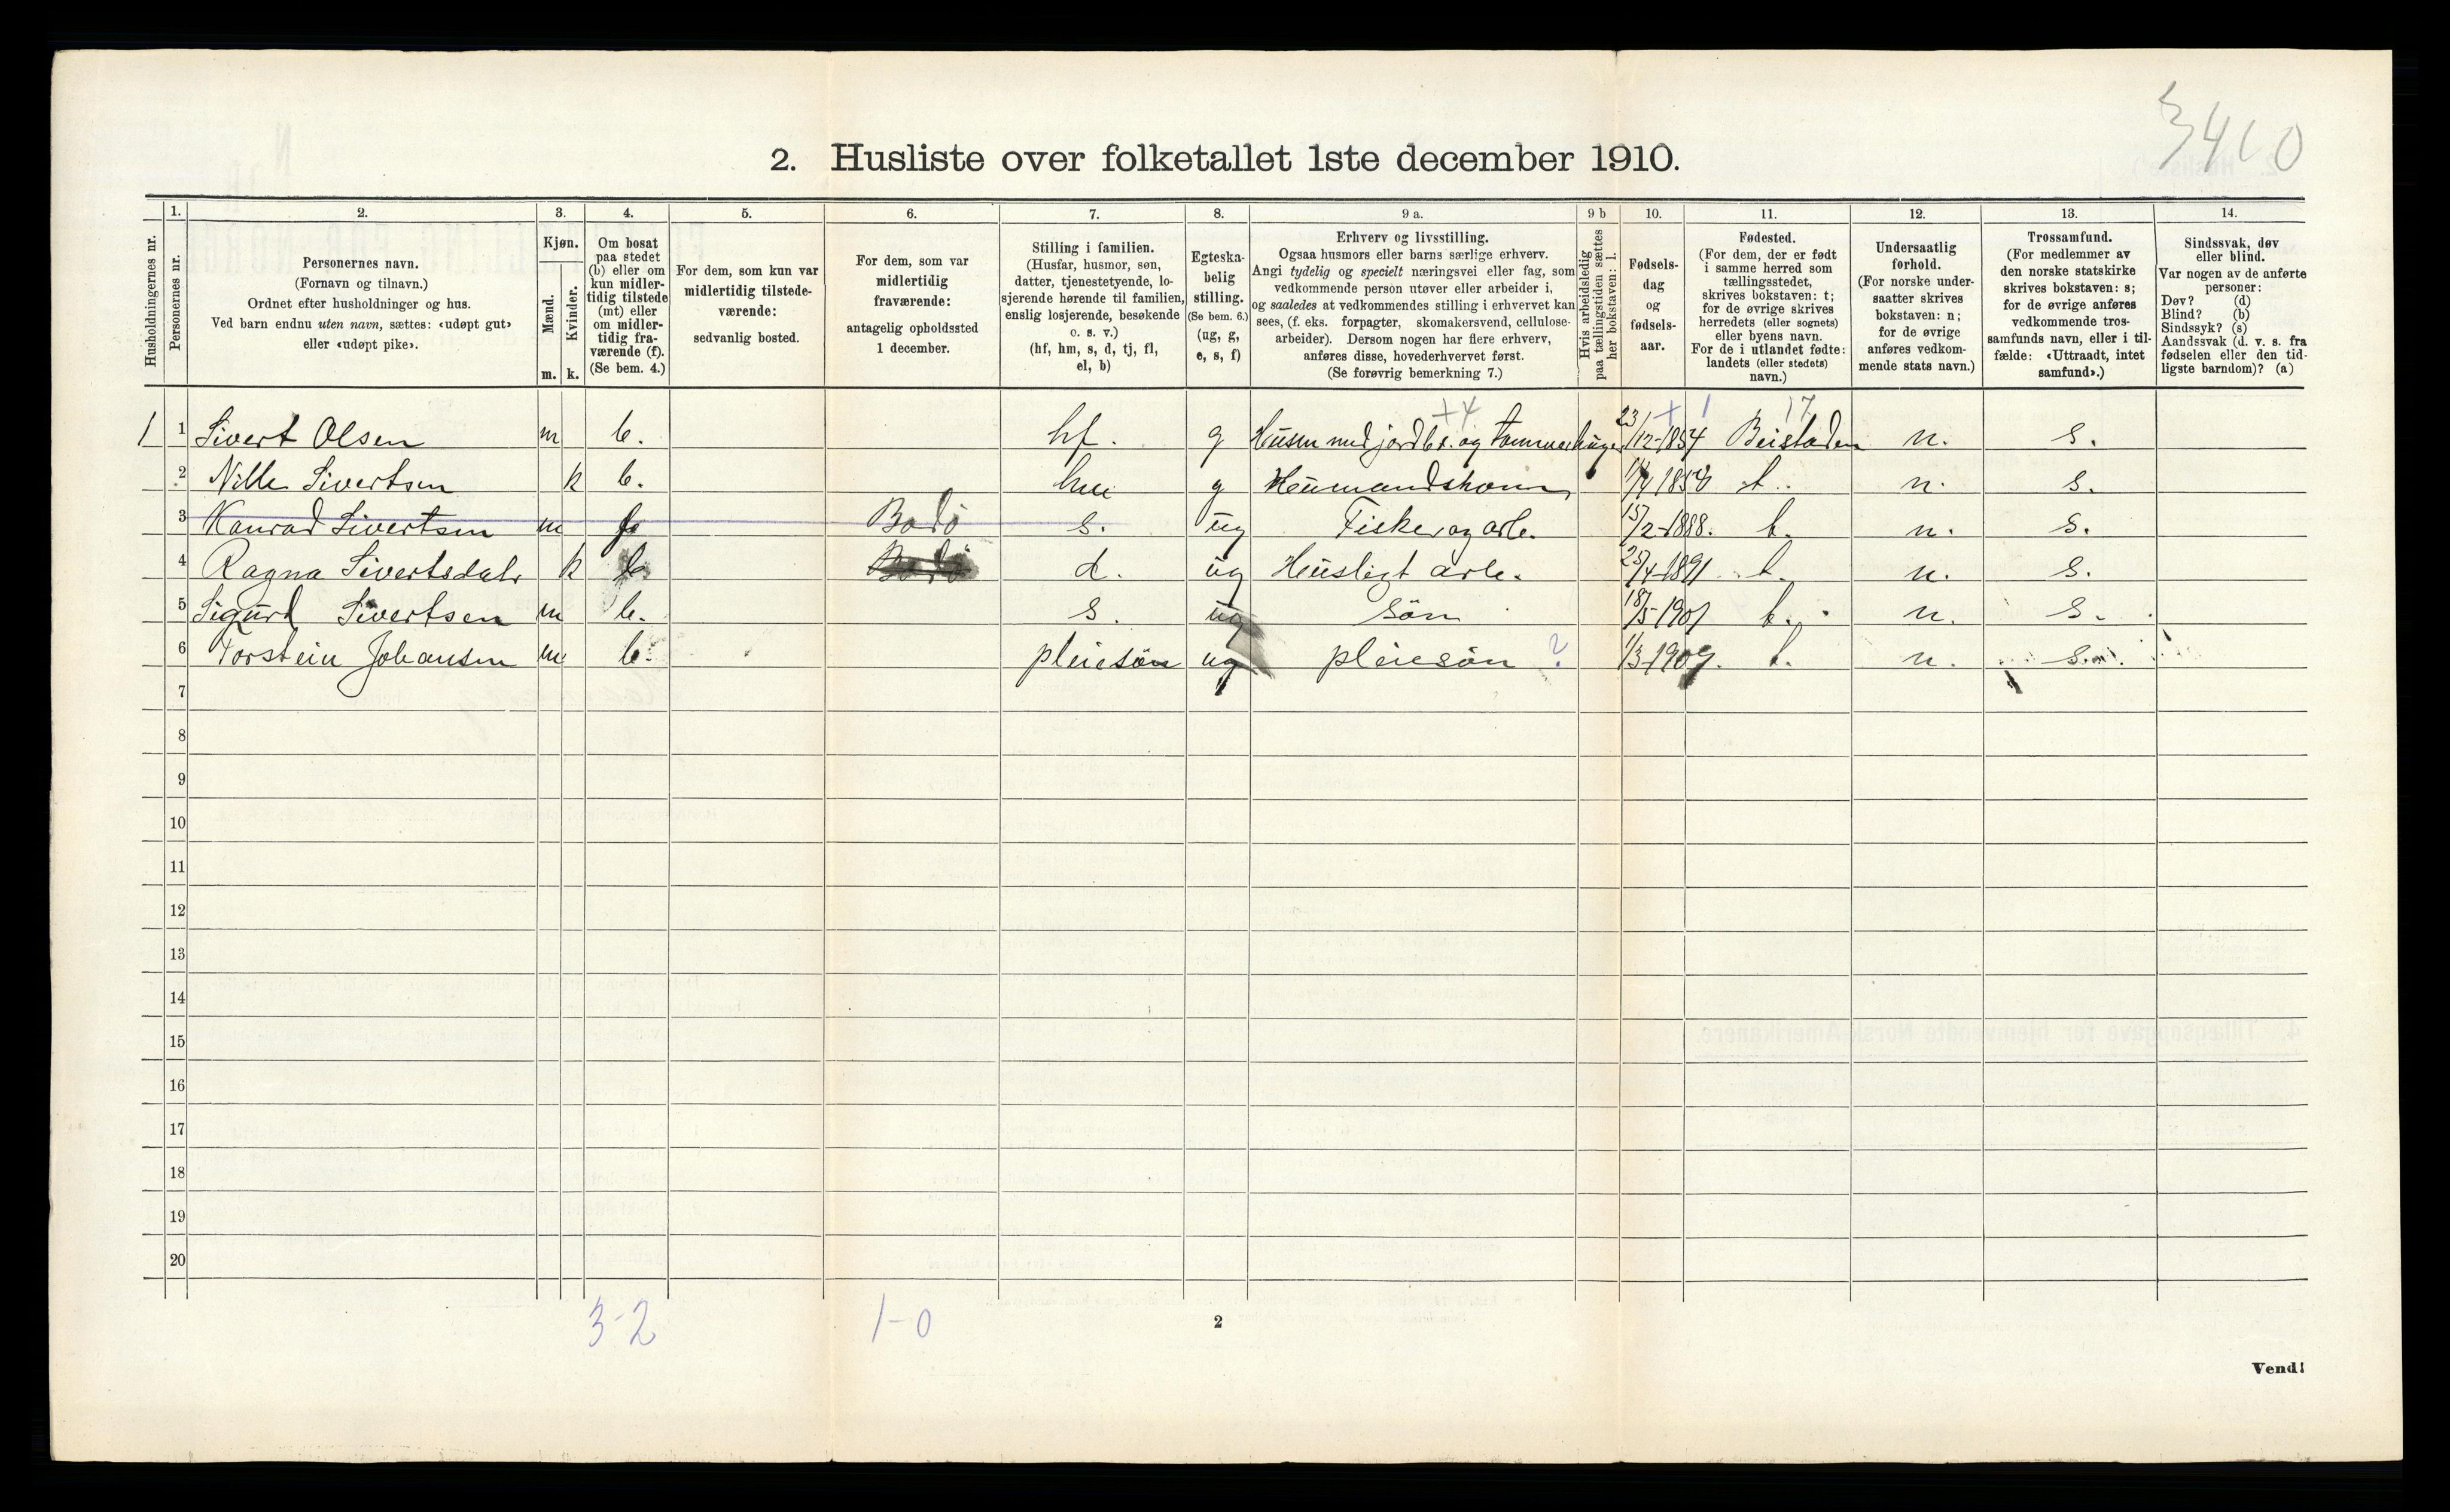 3410
2. Husliste over folketallet 1ste december 1910.
1. 2. 3. 4. 5. 6. 7. 8. 9 a. 9 b 10. 11. 12. 13. 14.
Husholdningernes nr.
Personernes nr.
Personernes navn.
(Fornavn og tilnavn.)
Ordnet efter husholdninger og hus.
Ved barn endnu uten navn, sættes: «udøpt gut»
eller «udøpt pike».
Kjøn.
Mænd.
Kvinder.
m. k.
Om bosat
paa stedet
(b) eller om
kun midler-
tidig tilstede
(mt) eller
om midler-
tidig fra-
værende (f).
(Se bem. 4.)
For dem, som kun var
midlertidig tilstede-
værende:
sedvanlig bosted.
For dem, som var
midlertidig
fraværende:
antagelig opholdssted
1 december.
Stilling i familien.
(Husfar, husmor, søn,
datter, tjenestetyende, lo-
sjerende hørende til familien,
enslig losjerende, besøkende
o. s. v.)
(hf, hm, s, d, tj, fl,
el, b)
Egteska-
belig
stilling.
(Se bem. 6.)
(ug, g,
e, s, f)
Erhverv og livsstilling.
Ogsaa husmors eller barns særlige erhverv.
Angi tydelig og specielt næringsvei eller fag, som
vedkommende person utøver eller arbeider i,
og saaledes at vedkommendes stilling i erhvervet kan
sees, (f. eks. forpagter, skomakersvend, cellulose-
arbeider). Dersom nogen har flere erhverv,
anføres disse, hovederhvervet først.
(Se forøvrig bemerkning 7.)
Hvis arbeidsledig
paa tællingstiden sættes
her bokstaven: l.
Fødsels-
dag
og
fødsels-
aar.
Fødested.
(For dem, der er født
i samme herred som
tællingsstedet,
skrives bokstaven: t;
for de øvrige skrives
herredets (eller sognets)
eller byens navn.
For de i utlandet fødte:
landets (eller stedets)
navn.)
Undersaatlig
forhold.
(For norske under-
saatter skrives
bokstaven: n;
for de øvrige
anføres vedkom-
mende stats navn.)
Trossamfund.
(For medlemmer av
den norske statskirke
skrives bokstaven: s;
for de øvrige anføres
vedkommende tros-
samfunds navn, eller i til-
fælde: «Uttraadt, intet
samfund».)
Sindssvak, døv
eller blind.
Var nogen av de anførte
personer:
Døv? (d)
Blind? (b)
Sindssyk? (s)
Aandssvak (d. v. s. fra
fødselen eller den tid-
ligste barndom)? (a)
+4 + 1 17
1 1 Sivert Olsen m b. hf. g Husm med jordbr. og 23/12-1854 Beistaden n. s.
2 Nille Sivertsen k b. g t. n. s.
3 Konrad Sivertsen m f Bodö s. ug Fisker og arb. 15/2-1888. t. n. s.
4 Ragna Sivertsdatr k b Bodö d. ug Husligt arb. 25/4-1891 t. n. s.
5 Sigurd Sivertsen m b. s. ug sön 18/5-1901 t. n. s.
6 Torstein Johansen m b. pleiesön ug pleiesön ? 1/3-1909. t. n. s.
7
8
9
10
11
12
13
14
15
16
17
18
19
20
3-2 1-0
2
Vend!